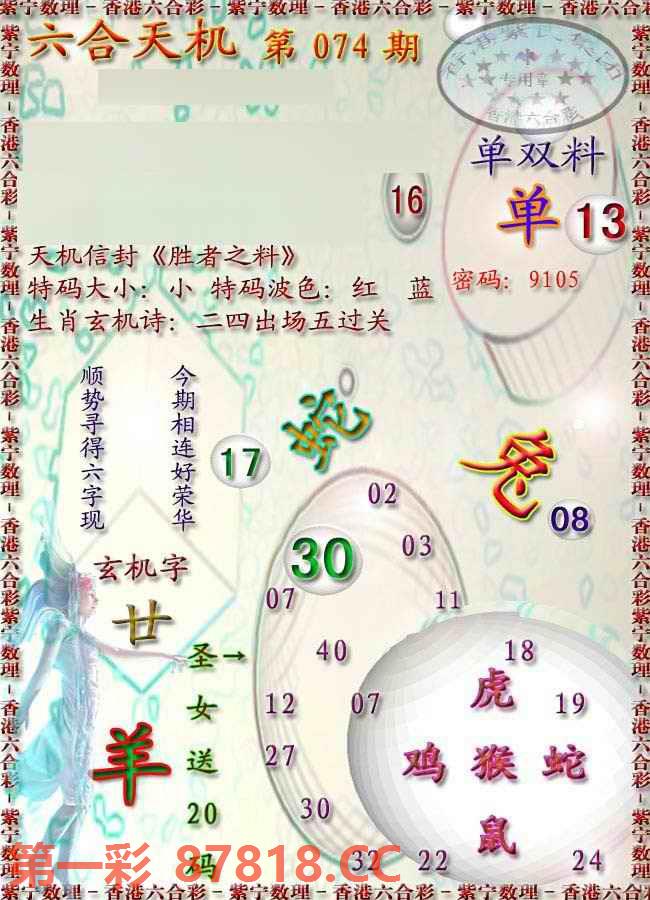 紫宁数理－香港六合彩－紫宁数理－香港六合彩－紫宁数理－香港六合彩
六合天机 第 074 期
专用章
香港六合彩
单双料
单 13
16
天机信封《胜者之料》
特码大小：小 特码波色：红 蓝
密码：9105
生肖玄机诗：二四出场五过关
今期相连好荣华
顺势寻得六字现
17
蛇
兔
08
玄机字
廿
羊
圣→
女
送
20
码
02
30
03
07
11
40
18
12
07
虎
19
27
鸡 猴 蛇
30
鼠
32
22
24
第一彩 87818.CC
紫宁数理－香港六合彩－紫宁数理－香港六合彩－紫宁数理－香港六合彩